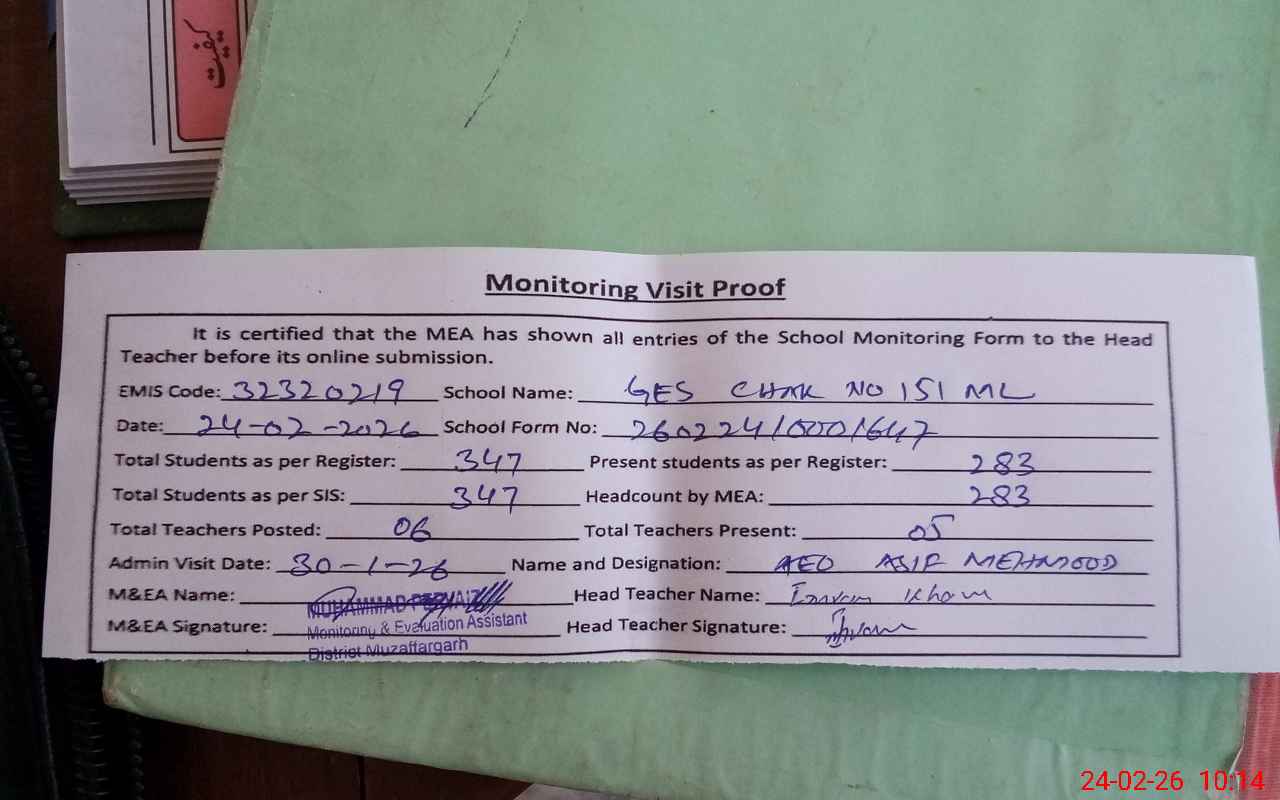 کیفیت
Monitoring Visit Proof
It is certified that the MEA has shown all entries of the School Monitoring Form to the Head
Teacher before its online submission.
EMIS Code: 32320219 School Name: GES CHAK NO 151 ML
Date: 24-02-2026 School Form No: 260224/0001647
Total Students as per Register: 347 Present students as per Register: 283
Total Students as per SIS: 347 Headcount by MEA: 283
Total Teachers Posted: 06 Total Teachers Present: 05
Admin Visit Date: 30-1-26 Name and Designation: AEO ASIF MEHMOOD
M&EA Name: MUHAMMAD PERVAIZ Head Teacher Name: Imran Khan
M&EA Signature: Monitoring & Evaluation Assistant Head Teacher Signature:
District Muzaffargarh
24-02-26 10:14